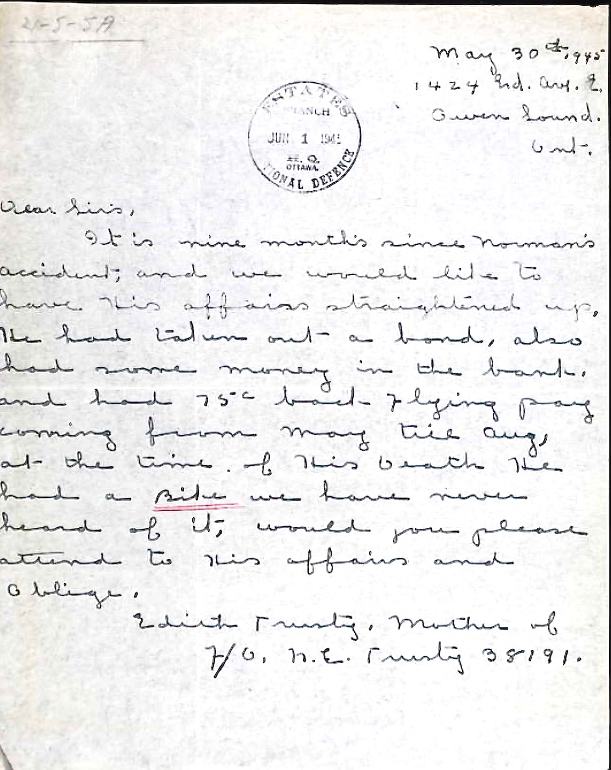 21-5-5A
May 30th, 1945
1424 3rd. Ave. E.
Owen Sound.
Ont.
ESTATES
BRANCH
JUN 1 1945
OTTAWA.
NATIONAL DEFENCE
Dear Sirs,
It is nine months since Norman's
accident, and we would like to
have His affairs straightened up,
He had taken out a bond, also
had some money in the bank.
and had 75c back Flying pay
coming from May till Aug,
at the time of His Death He
had a Bike we have never
heard of it, would you please
attend to His affairs and
Oblige.
Edith Trusty, Mother of
F/O. N.E. Trusty 38191.